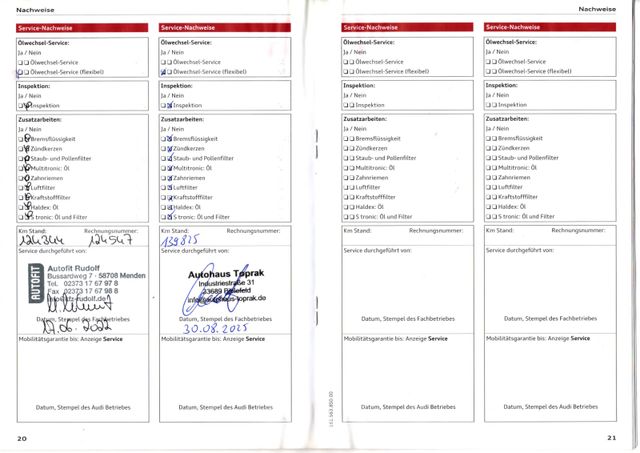 Nachweise
Service-Nachweise
Ölwechsel-Service:
Ja / Nein
Ölwechsel-Service
Ölwechsel-Service (flexibel)
Inspektion:
Ja / Nein
Inspektion
Zusatzarbeiten:
Ja / Nein
Bremsflüssigkeit
Zündkerzen
Staub- und Pollenfilter
Multitronic: Öl
Zahnriemen
Luftfilter
Kraftstofffilter
Haldex: Öl
S tronic: Öl und Filter
Km Stand: Rechnungsnummer:
124344 124547
Service durchgeführt von:
AUTOFIT
Autofit Rudolf
Bussardweg 7 · 58708 Menden
Tel. 02373 17 67 97 8
Fax 02373 17 67 98 8
Datum, Stempel des Fachbetriebes
17.06.2022
Mobilitätsgarantie bis: Anzeige Service
Datum, Stempel des Audi Betriebes
20
Service-Nachweise
Ölwechsel-Service:
Ja / Nein
Ölwechsel-Service
Ölwechsel-Service (flexibel)
Inspektion:
Ja / Nein
Inspektion
Zusatzarbeiten:
Ja / Nein
Bremsflüssigkeit
Zündkerzen
Staub- und Pollenfilter
Multitronic: Öl
Zahnriemen
Luftfilter
Kraftstofffilter
Haldex: Öl
S tronic: Öl und Filter
Km Stand: Rechnungsnummer:
139825
Service durchgeführt von:
Autohaus Toprak
Industriestraße 31
info@autohaus-toprak.de
Datum, Stempel des Fachbetriebes
30.08.2025
Mobilitätsgarantie bis: Anzeige Service
Datum, Stempel des Audi Betriebes
Nachweise
Service-Nachweise
Ölwechsel-Service:
Ja / Nein
Ölwechsel-Service
Ölwechsel-Service (flexibel)
Inspektion:
Ja / Nein
Inspektion
Zusatzarbeiten:
Ja / Nein
Bremsflüssigkeit
Zündkerzen
Staub- und Pollenfilter
Multitronic: Öl
Zahnriemen
Luftfilter
Kraftstofffilter
Haldex: Öl
S tronic: Öl und Filter
Km Stand: Rechnungsnummer:
Service durchgeführt von:
Datum, Stempel des Fachbetriebes
Mobilitätsgarantie bis: Anzeige Service
Datum, Stempel des Audi Betriebes
Service-Nachweise
Ölwechsel-Service:
Ja / Nein
Ölwechsel-Service
Ölwechsel-Service (flexibel)
Inspektion:
Ja / Nein
Inspektion
Zusatzarbeiten:
Ja / Nein
Bremsflüssigkeit
Zündkerzen
Staub- und Pollenfilter
Multitronic: Öl
Zahnriemen
Luftfilter
Kraftstofffilter
Haldex: Öl
S tronic: Öl und Filter
Km Stand: Rechnungsnummer:
Service durchgeführt von:
Datum, Stempel des Fachbetriebes
Mobilitätsgarantie bis: Anzeige Service
Datum, Stempel des Audi Betriebes
21